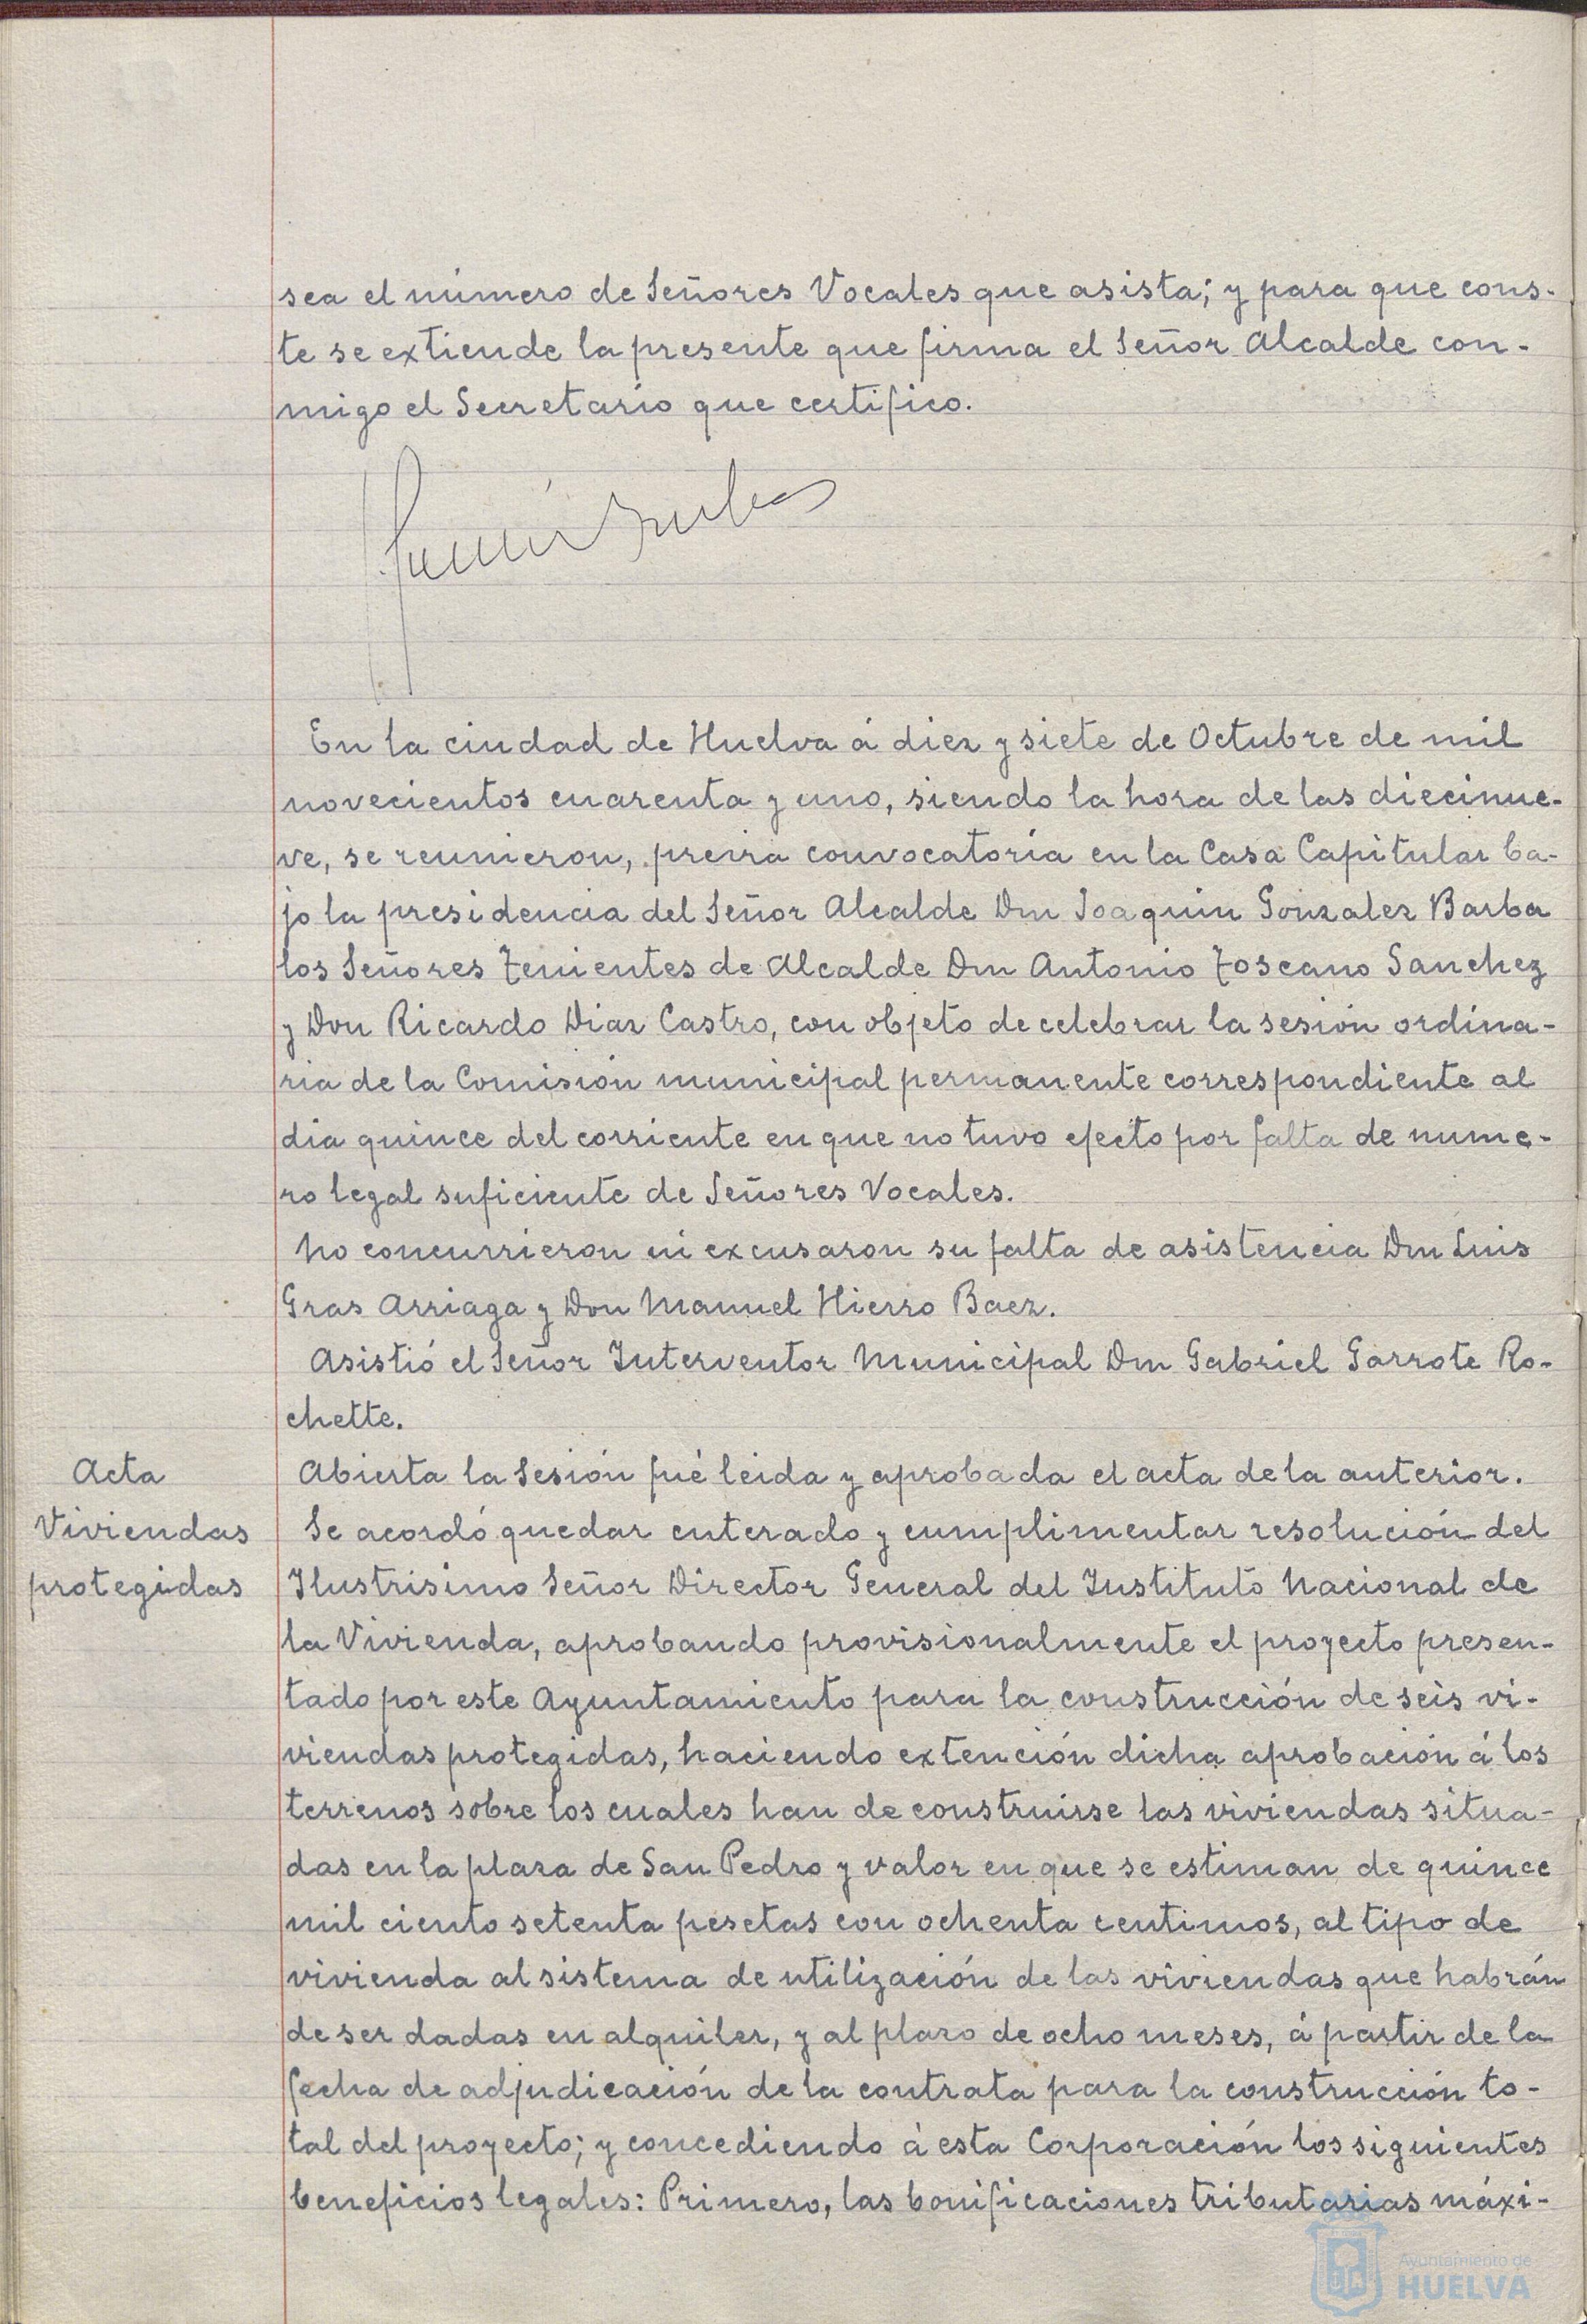 sea el número de Señores Vocales que asista; y para que cons-
te se extiende la presente que firma el Señor Alcalde con-
migo el Secretario que certifico.
En la ciudad de Huelva á diez y siete de Octubre de mil
novecientos cuarenta y uno, siendo la hora de las diecinue-
ve, se reunieron, previa convocatoria en la Casa Capitular ba-
jo la presidencia del Señor Alcalde Don Joaquin Gonzalez Barba
los Señores Tenientes de Alcalde Don Antonio Toscano Sanchez
y Don Ricardo Diaz Castro, con objeto de celebrar la sesión ordina-
ria de la Comisión municipal permanente correspondiente al
dia quince del corriente en que no tuvo efecto por falta de nume-
ro legal suficiente de Señores Vocales.
No concurrieron ni excusaron su falta de asistencia Don Luis
Gras Arriaga y Don Manuel Hierro Baez.
Asistió el Señor Interventor Municipal Don Gabriel Garrote Ro-
chette.
Acta
Abierta la Sesión fué leida y aprobada el acta de la anterior.
Viviendas
protegidas
Se acordó quedar enterado y cumplimentar resolución del
Ilustrisimo Señor Director General del Instituto Nacional de
la Vivienda, aprobando provisionalmente el proyecto presen-
tado por este Ayuntamiento para la construcción de seis vi-
viendas protegidas, haciendo extención dicha aprobación á los
terrenos sobre los cuales han de construirse las viviendas situa-
das en la plaza de San Pedro y valor en que se estiman de quince
mil ciento setenta pesetas con ochenta centimos, al tipo de
vivienda al sistema de utilización de las viviendas que habrán
de ser dadas en alquiler, y al plazo de ocho meses, á partir de la
fecha de adjudicación de la contrata para la construcción to-
tal del proyecto; y concediendo á esta Corporación los siguientes
beneficios legales: Primero, las bonificaciones tributarias máxi-
Ayuntamiento de
HUELVA